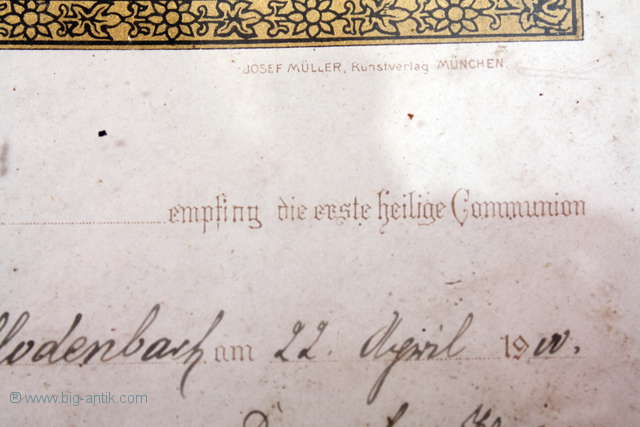 JOSEF MÜLLER, Kunstverlag MÜNCHEN.
empfing die erste heilige Communion
am 22. April 1900.
® www.big-antik.com